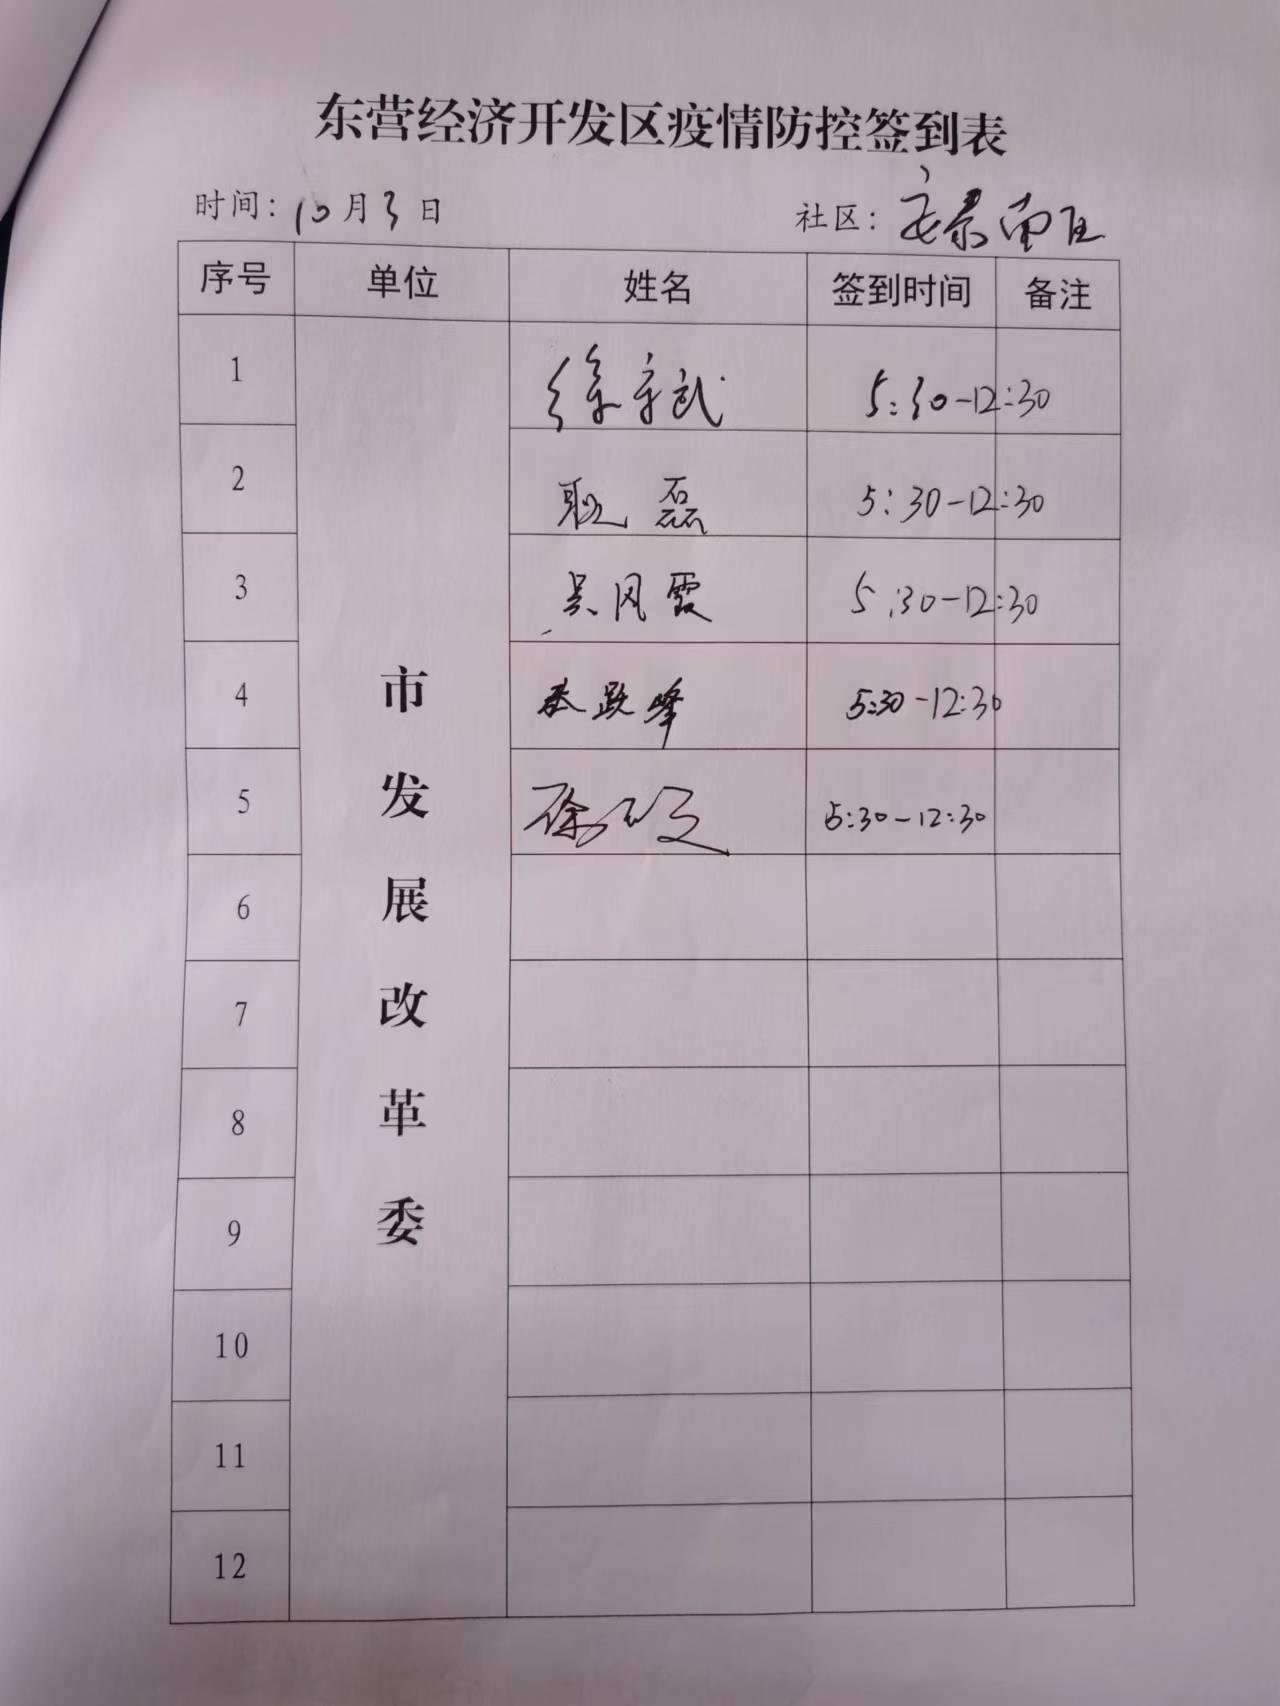 东营经济开发区疫情防控签到表
时间：10月3日 社区：安泰南区
序号 单位 姓名 签到时间 备注
市发展改革委
1 徐守武 5:30-12:30
2 耿磊 5:30-12:30
3 吴风霞 5:30-12:30
4 跃峰 5:30-12:30
5 徐 5:30-12:30
6
7
8
9
10
11
12